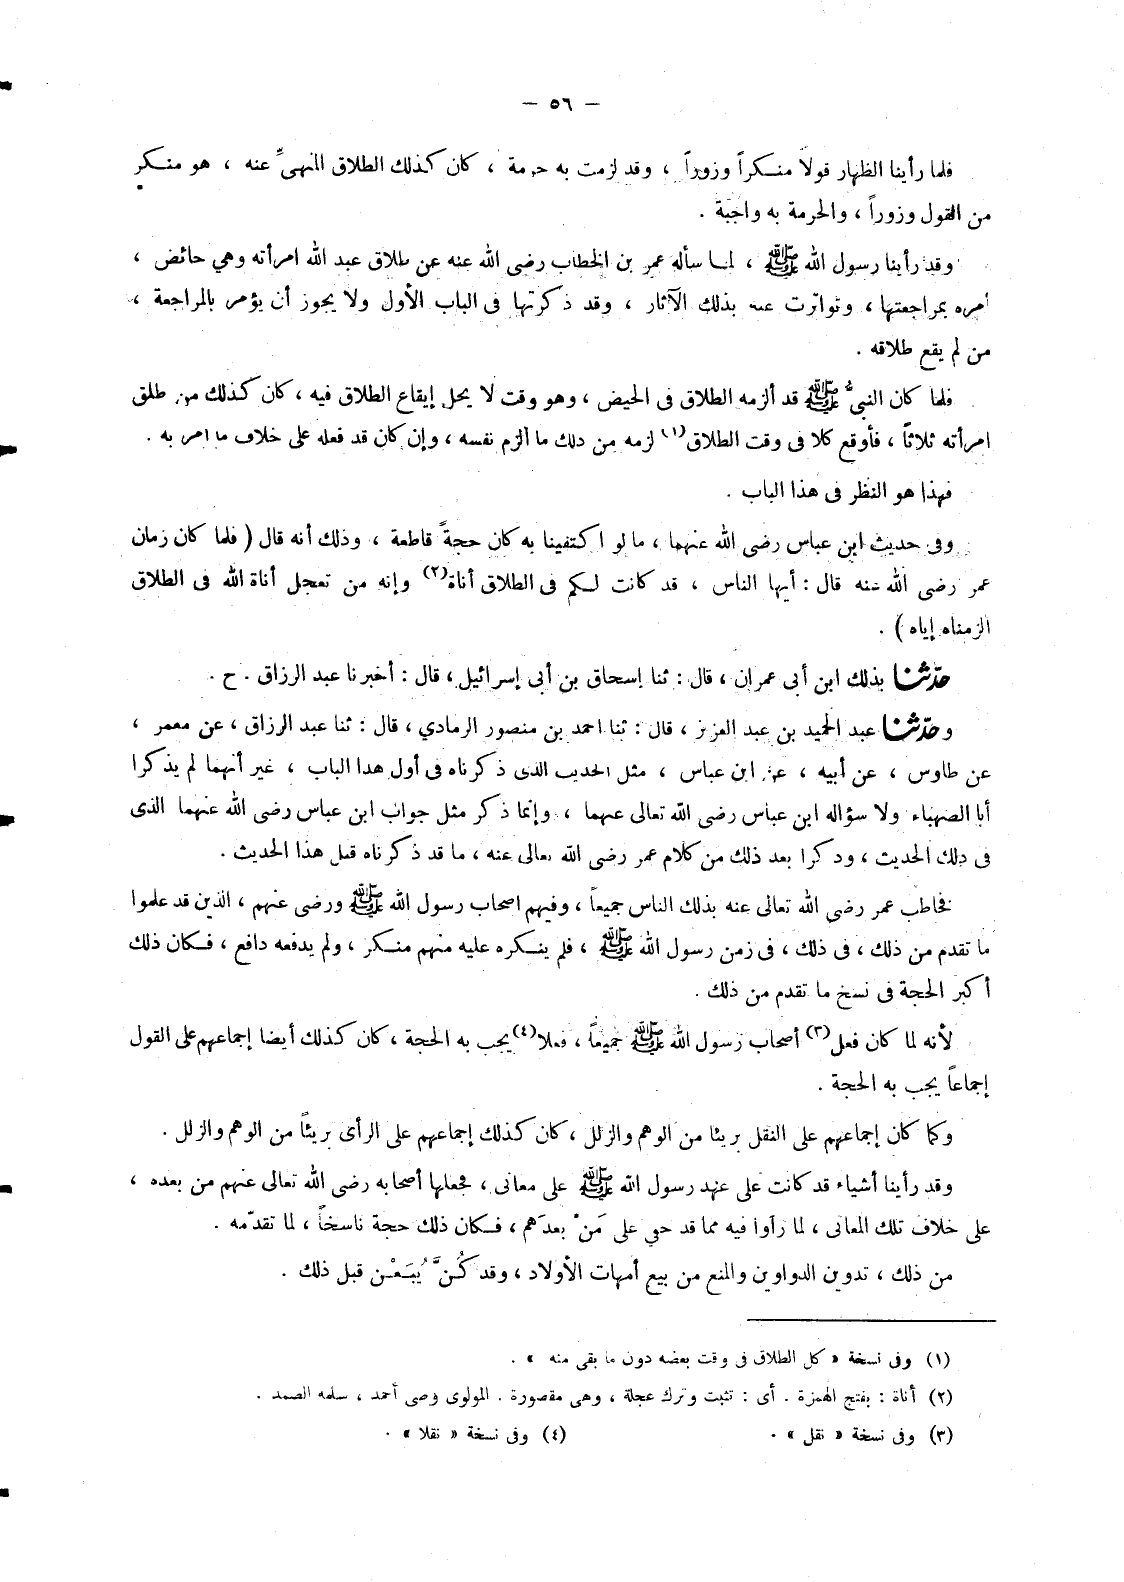 — ٥٦ —
فلما رأينا الظهار قولاً منكراً وزوراً ، وقد لزمت به حرمة ، كان كذلك الطلاق المنهيّ عنه ، هو منكر
من القول وزوراً ، والحرمة به واجبة .
وقد رأينا رسول الله ﷺ ، لما سأله عمر بن الخطاب رضى الله عنه عن طلاق عبد الله امرأته وهي حائض ،
أمره بمراجعتها ، وتواترت عنه بذلك الآثار ، وقد ذكرتها فى الباب الأول ولا يجوز أن يؤمر بالمراجعة ،
من لم يقع طلاقه .
فلما كان النبىُّ ﷺ قد ألزمه الطلاق فى الحيض ، وهو وقت لا يحل إيقاع الطلاق فيه ، كان كذلك من طلق
امرأته ثلاثاً ، فأوقع كلا فى وقت الطلاق(١) لزمه من ذلك ما ألزم نفسه ، وإن كان قد فعله على خلاف ما أمر به .
فهذا هو النظر فى هذا الباب .
وفى حديث ابن عباس رضى الله عنهما ، ما لو اكتفينا به كان حجةً قاطعة ، وذلك أنه قال ( فلما كان زمان
عمر رضى الله عنه قال : أيها الناس ، قد كانت لكم فى الطلاق أناة(٢) وإنه من تعجل أناة الله فى الطلاق
ألزمناه إياه ) .
حدّثنا بذلك ابن أبى عمران ، قال : ثنا إسحاق بن أبى إسرائيل ، قال : أخبرنا عبد الرزاق . ح .
وحدّثنا عبد الحميد بن عبد العزيز ، قال : ثنا أحمد بن منصور الرمادي ، قال : ثنا عبد الرزاق ، عن معمر ،
عن طاوس ، عن أبيه ، عن ابن عباس ، مثل الحديث الذى ذكرناه فى أول هذا الباب ، غير أنهما لم يذكرا
أبا الصهباء ولا سؤاله ابن عباس رضى الله تعالى عنهما ، وإنما ذكر مثل جواب ابن عباس رضى الله عنهما الذى
فى ذلك الحديث ، وذكرا بعد ذلك من كلام عمر رضى الله تعالى عنه ، ما قد ذكرناه قبل هذا الحديث .
فخاطب عمر رضى الله تعالى عنه بذلك الناس جميعاً ، وفيهم أصحاب رسول الله ﷺ ورضى عنهم ، الذين قد علموا
ما تقدم من ذلك ، فى ذلك ، فى زمن رسول الله ﷺ ، فلم ينكره عليه منهم منكر ، ولم يدفعه دافع ، فكان ذلك
أكبر الحجة فى نسخ ما تقدم من ذلك .
لأنه لما كان فعل(٣) أصحاب رسول الله ﷺ جميعاً ، فعلا(٤) يجب به الحجة ، كان كذلك أيضا إجماعهم على القول
إجماعاً يجب به الحجة .
وكما كان إجماعهم على النقل بريئا من الوهم والزلل ، كان كذلك إجماعهم على الرأى بريئاً من الوهم والزلل .
وقد رأينا أشياء قد كانت على عهد رسول الله ﷺ على معانى ، فجعلها أصحابه رضى الله تعالى عنهم من بعده ،
على خلاف تلك المعانى ، لما رأوا فيه مما قد خفي على مَنْ بعدَهم ، فكان ذلك حجة ناسخاً ، لما تقدّمه .
من ذلك ، تدوين الدواوين والمنع من بيع أمهات الأولاد ، وقد كُنَّ يُبَعْن قبل ذلك .
(١) وفى نسخة « كل الطلاق فى وقت بعضه دون ما بقى منه » .
(٢) أناة : بفتح الهمزة . أى : تثبت وترك عجلة ، وهى مقصورة . المولوى وصى أحمد ، سلمه الصمد .
(٣) وفى نسخة « نقل » . (٤) وفى نسخة « نقلا » .